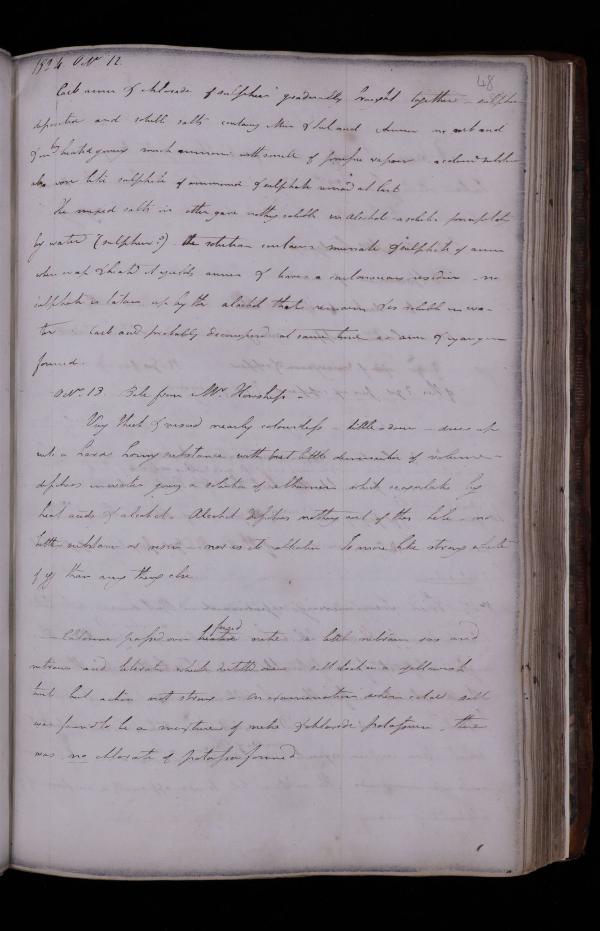 1824 Nov 12
48
Carb amm & chloride of sulphur gradually brought together - sulphur
deposited and whole salts contains Mur & and Amm no carb and
heated gives much ammonia with smell of vapour sulphur
also some little sulphite of ammonia & sulphate at last
The mixed salts in ether gave nothing soluble in Alcohol a solution precipitated
by water (sulphur?) the solution contains muriate & sulphite of amm
when evap & heated it yields amm & leaves a carbonaceous residue - no
sulphate is taken up by the alcohol that remains less soluble in wa-
ter carb amd probably decomposed at same time as
formed.
Nov. 13. Bile from Mr. Howship -
Very thick & viscid nearly colourless - little odour - dries up
into a hard horny substance with but little diminution of volume -
diffuses in water giving a solution of albumen which coagulates by
heat acids & alcohol. Alcohol dissolves nothing out of this bile - no
bitter substance or resin, nor is it alkaline Is more like strong white
of egg than any thing else
- Chlorine passed over heated fused nitre a little nitrous gas and
nitrous acid liberated which distilled over salt had a yellowish
tint but action not strong - on examination when cold salt
was found to be a mixture of nitre & chloride potassium, there
was no chlorate of potassa formed